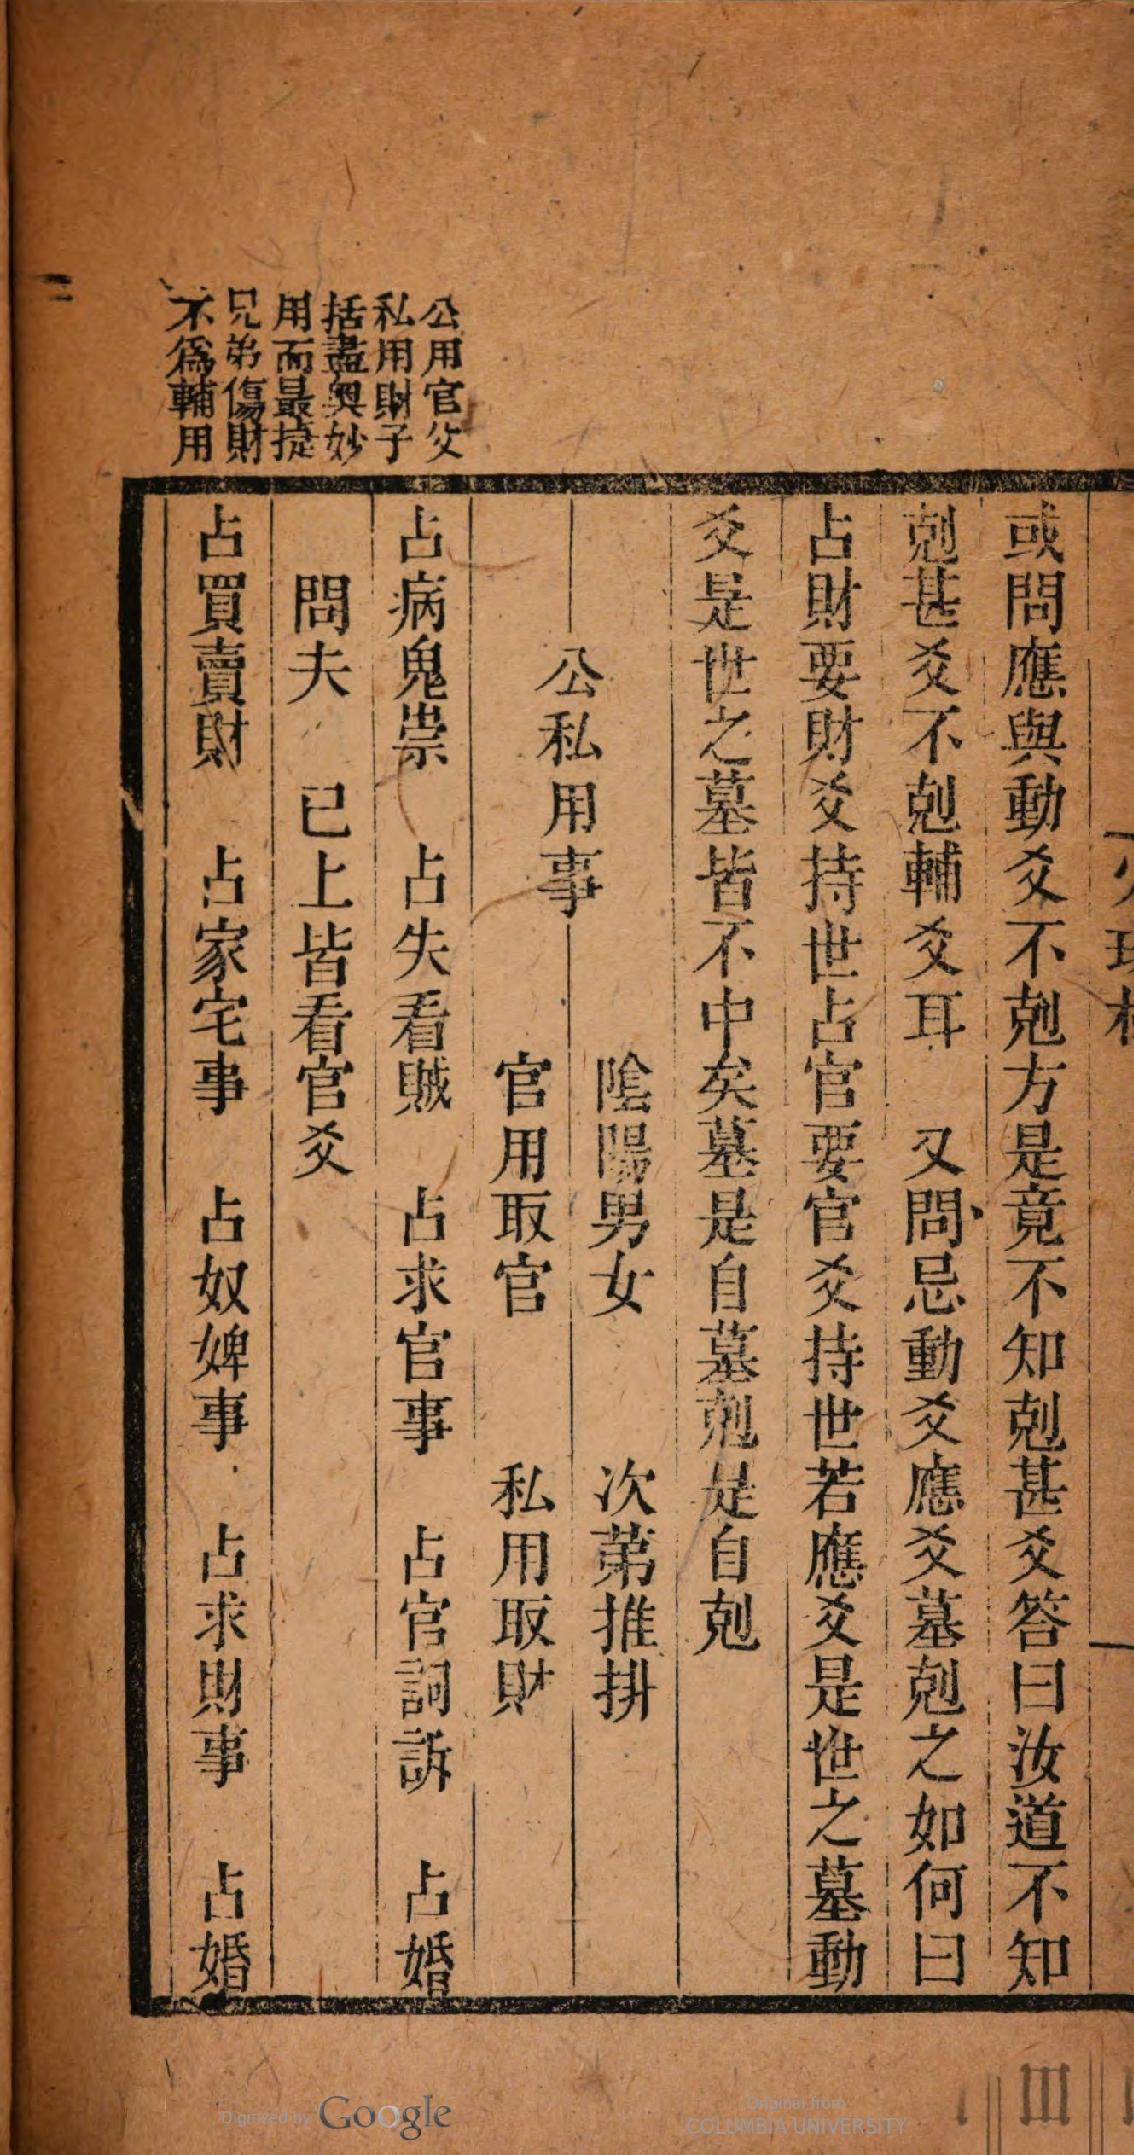 或問應與動爻不剋方是竟不知剋甚爻答曰汝道不知
剋甚爻不剋輔爻耳 又問忌動爻應爻墓剋之如何曰
占財要財爻持世占官要官爻持世若應爻是世之墓動
爻是世之墓皆不中矣墓是自墓剋是自剋
公私用事
陰陽男女 次第推排
官用取官 私用取財
公用官父
私用財子
括盡奧妙
用而最捷
兄弟傷財
不爲輔用
占病鬼祟 占失看賊 占求官事 占官詞訴 占婚
問夫 已上皆看官爻
占買賣財 占家宅事 占奴婢事 占求財事 占婚
二
Digitized by Google
Original from
COLUMBIA UNIVERSITY